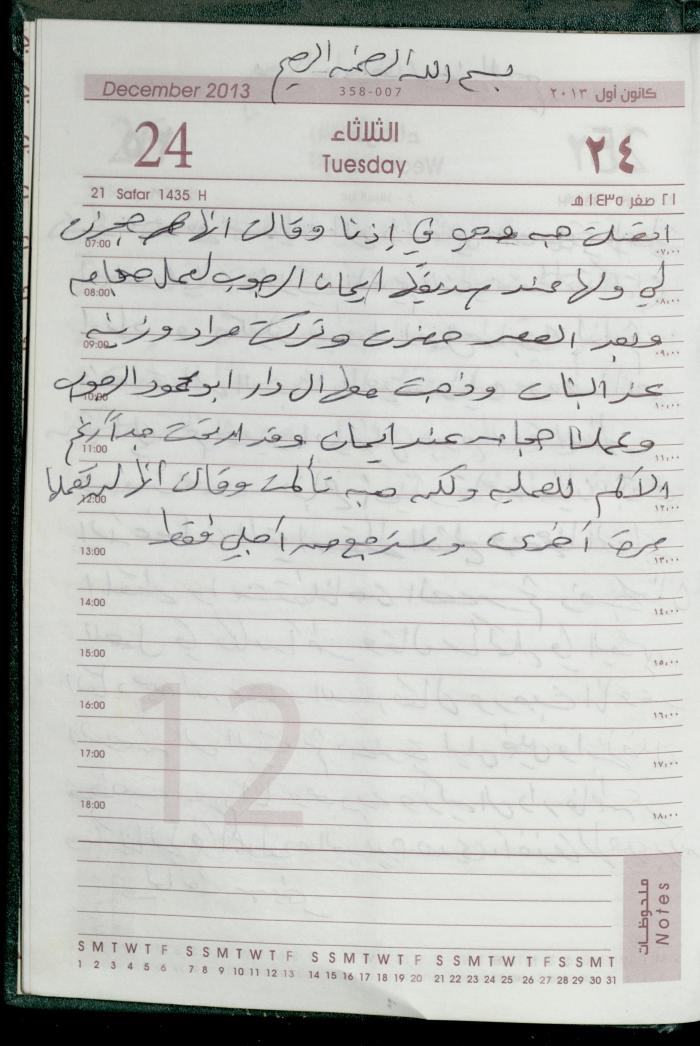 بسم الله الرحمن الرحيم
December 2013 358-007 كانون أول ٢٠١٣
24 الثلاثاء ٢٤
Tuesday
21 Safar 1435 H ٢١ صفر ١٤٣٥ هـ
اتصلت هبه في إذنا وقالت انها حجزت
07:00 ٠٧,٠٠
لي ولها عند ايمان الرجوب لعمل حجامه
08:00 ٠٨,٠٠
وبعد العصر حضرت وتركت مراد وزينه
09:00 ٠٩,٠٠
عند البنات وذهبت معها الى دار ابو محمود الرجوب
10:00 ١٠,٠٠
وعملنا حجامه عند ايمان وقد ارتحت جداً رغم
11:00 ١١,٠٠
الألم للعمليه ولكن هبه تألمت وقالت أنها لن تعملها
12:00 ١٢,٠٠
مرة أخرى من أجلي فقط
13:00 ١٣,٠٠
14:00 ١٤,٠٠
15:00 ١٥,٠٠
16:00 ١٦,٠٠
17:00 ١٧,٠٠
18:00 ١٨,٠٠
12
ملحوظات
Notes
S M T W T F S S M T W T F S S M T W T F S S M T W T F S S M T
1 2 3 4 5 6 7 8 9 10 11 12 13 14 15 16 17 18 19 20 21 22 23 24 25 26 27 28 29 30 31